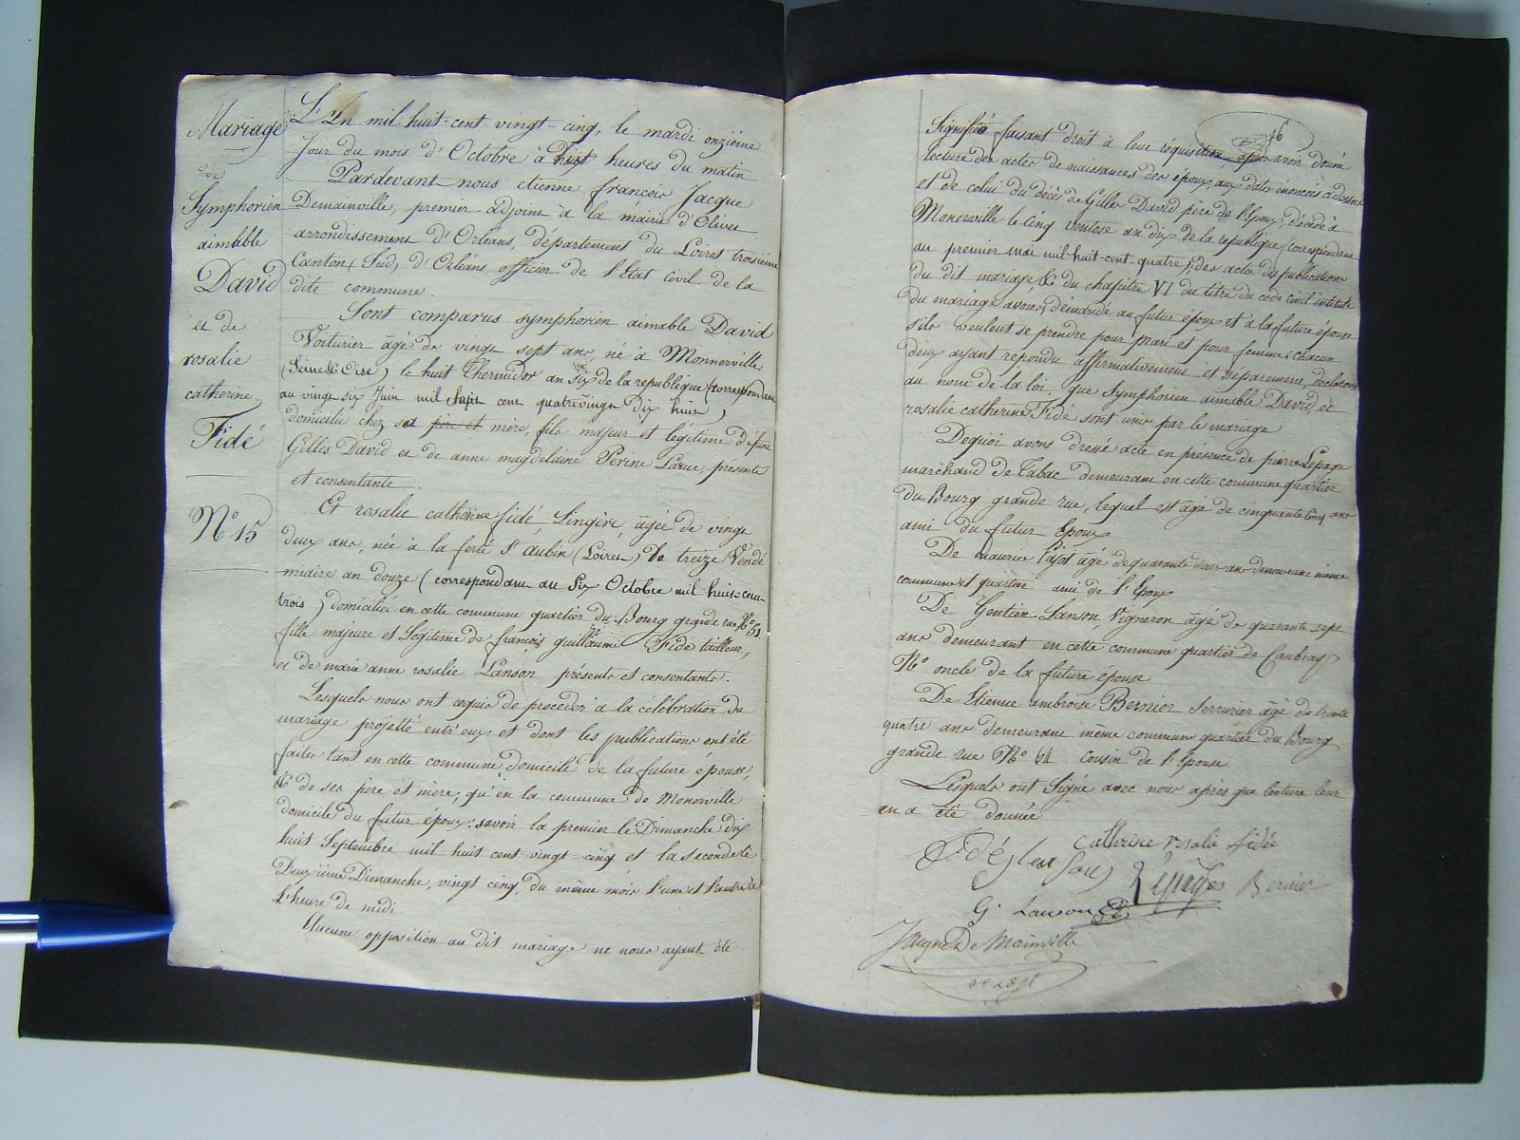 Mariage
de
Symphorien
aimable
David
et de
rosalie
catherine
Fidé
N.º 15
L'An mil huit-cent vingt-cinq, le mardi onzième
Jour du mois d'Octobre à huit heures du matin
Pardevant nous etienne françois Jacque
Demainville, premier adjoint à la mairie d'Olivet
arrondissement d'Orléans, département du Loiret troisième
Canton (Sud) d'Orléans officier de l'Etat civil de la
dite commune.
Sont comparus symphorien aimable David
Voiturier âgé de vingt sept ans, né à Monnerville
(Seine & Oise) le huit Thermidor an Six de la republique (correspondant
au vingt six Juin mil Sept cent quatrevingt dix huit)
domicilié chez sa père et mère, fils majeur et légitime de feu
Gilles David et de anne magdelaine Perine Larue, présente
et consentante.
Et rosalie catherine fidé Lingère, âgée de vingt
deux ans, née à la ferté St aubin (Loiret) le treize Vendé
miaire an douze (correspondant au Six Octobre mil huit-cent-
trois) domiciliée en cette commune quartier du Bourg grande rue N.º 61
fille majeure et Legitime de françois guillaume Fidé tailleur,
et de marie anne rosalie Lanson présents et consentants.
Lesquels nous ont requis de procéder à la célébration du
mariage projetté entr'eux et dont les publications ont été
faites tant en cette commune domicile de la future épouse,
& de ses père et mère, qu'en la commune de Monerville
domicile du futur époux: savoir la premier le Dimanche dix
huit Septembre mil huit cent vingt-cinq et la seconde le
Deuxième Dimanche, vingt cinq du même mois l'une et l'autre à
L'heure de midi
Aucune opposition au dit mariage ne nous ayant été
16
Signifiée faisant droit à leur réquisition après avoir donné
lecture des actes de naissances des époux aux dates énoncés ci dessus
et de celui du décès de Gilles David père de l'Epoux, décédé à
Monerville le Cinq ventose an dix de la republique (correspondant
au premier mai mil-huit-cent quatre); des actes de publications
du dit mariage & du chapitre VI du titre du code civil intitulé
du mariage, avons demandé au futur époux et à la future épouse
s'ils veulent se prendre pour mari et pour femme: chacun
deux ayant repondu affirmativement et séparement, declarons
au nome de la loi, que Symphorien aimable David et
rosalie catherine Fidé sont unis par le mariage
Dequoi avons dressé acte en présence de pierre Lepage
marchand de Tabac demeurant en cette commune quartier
du Bourg grande rue, lequel est âgé de cinquante cinq ans
ami du futur Epoux
De maurice Pajot âgé de quarante deux ans demeurant même
commune et quartier ami de l'Epoux
De Gentien Lanson, Vigneron âgé de quarante sept
ans demeurant en cette commune quartier de Caubray
N.º oncle de la future épouse
De Etienne ambroise Bernier Serrurier âgé de trente
quatre ans demeurant même commune quartier du Bourg
grande rue N.º 61 cousin de l'Epouse
Lesquels ont Signé avec nous après que lecture leur
en a été donnée
Catherine rosalie fidée
Bernier
G. Lanson
Jacque De Mainville